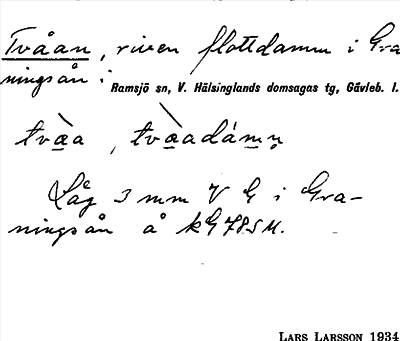 Tvåan, riven flottdamm i Gra
ningsån i Ramsjö sn, V. Hälsinglands domsagas tg, Gävleb. l.
tvàa, tvàadám̥n̥
Låg 3 mm V G i Gra-
ningsån å kG 78 SM.
LARS LARSSON 1934